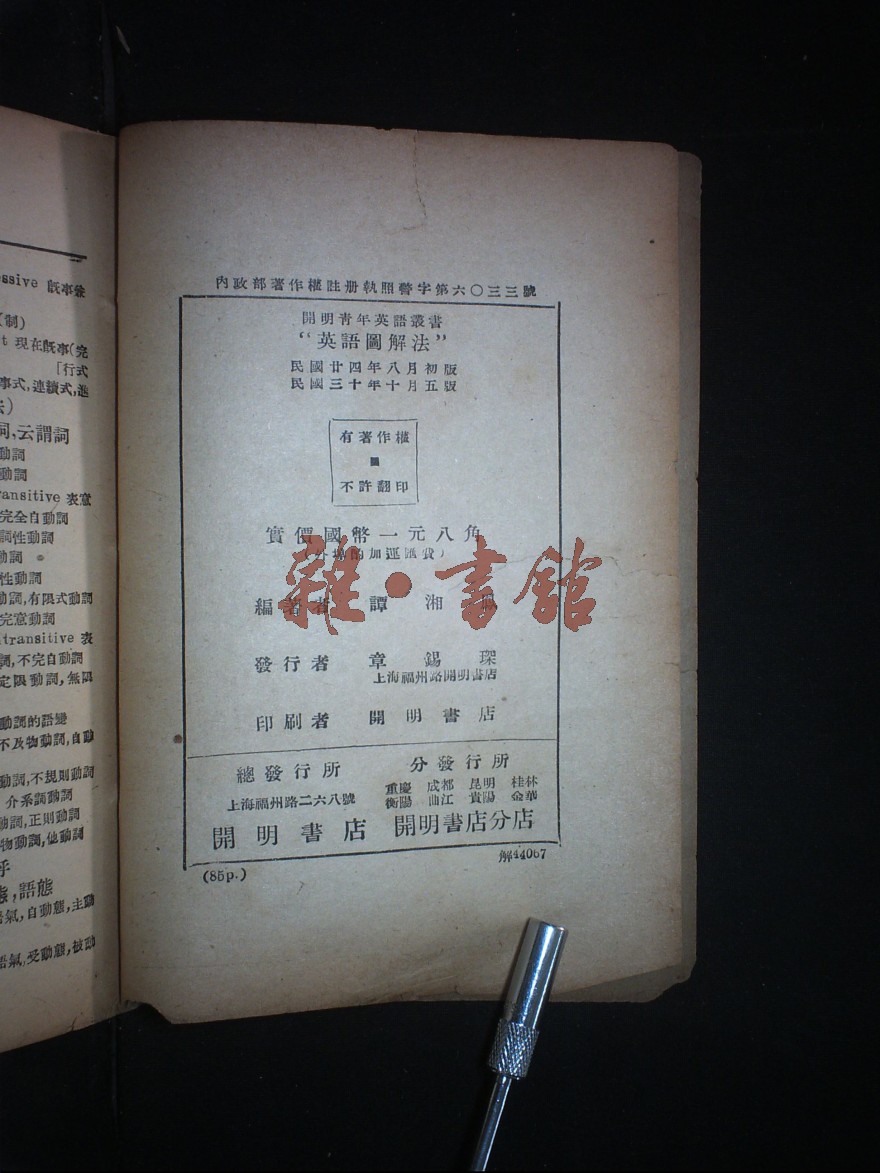 內政部著作權註册執照警字第六〇三三號
開明青年英語叢書
“英語圖解法”
民國廿四年八月初版
民國三十年十月五版
有著作權
不許翻印
實價國幣一元八角
(外埠酌加運匯費)
編著者 譚湘
發行者 章錫琛
上海福州路開明書店
印刷者 開明書店
總發行所
上海福州路二六八號
開明書店
分發行所
重慶 成都 昆明 桂林
衡陽 曲江 貴陽 金華
開明書店分店
解44067
(85p.)
雜·書館
essive 旣事
(制)
t 現在旣事(完
「行式
事式,連續式,進
法)
詞,云謂詞
動詞
動詞
ansitive 表意
完全自動詞
詞性動詞
動詞
性動詞
動詞,有限式動詞
完意動詞
transitive 表
詞,不完自動詞
定限動詞,無限
動詞的語變
不及物動詞,自動
動詞,不規則動詞
介系詞動詞
動詞,正則動詞
物動詞,他動詞
呼
態,語態
氣,自動態,主動
語氣,受動態,被動